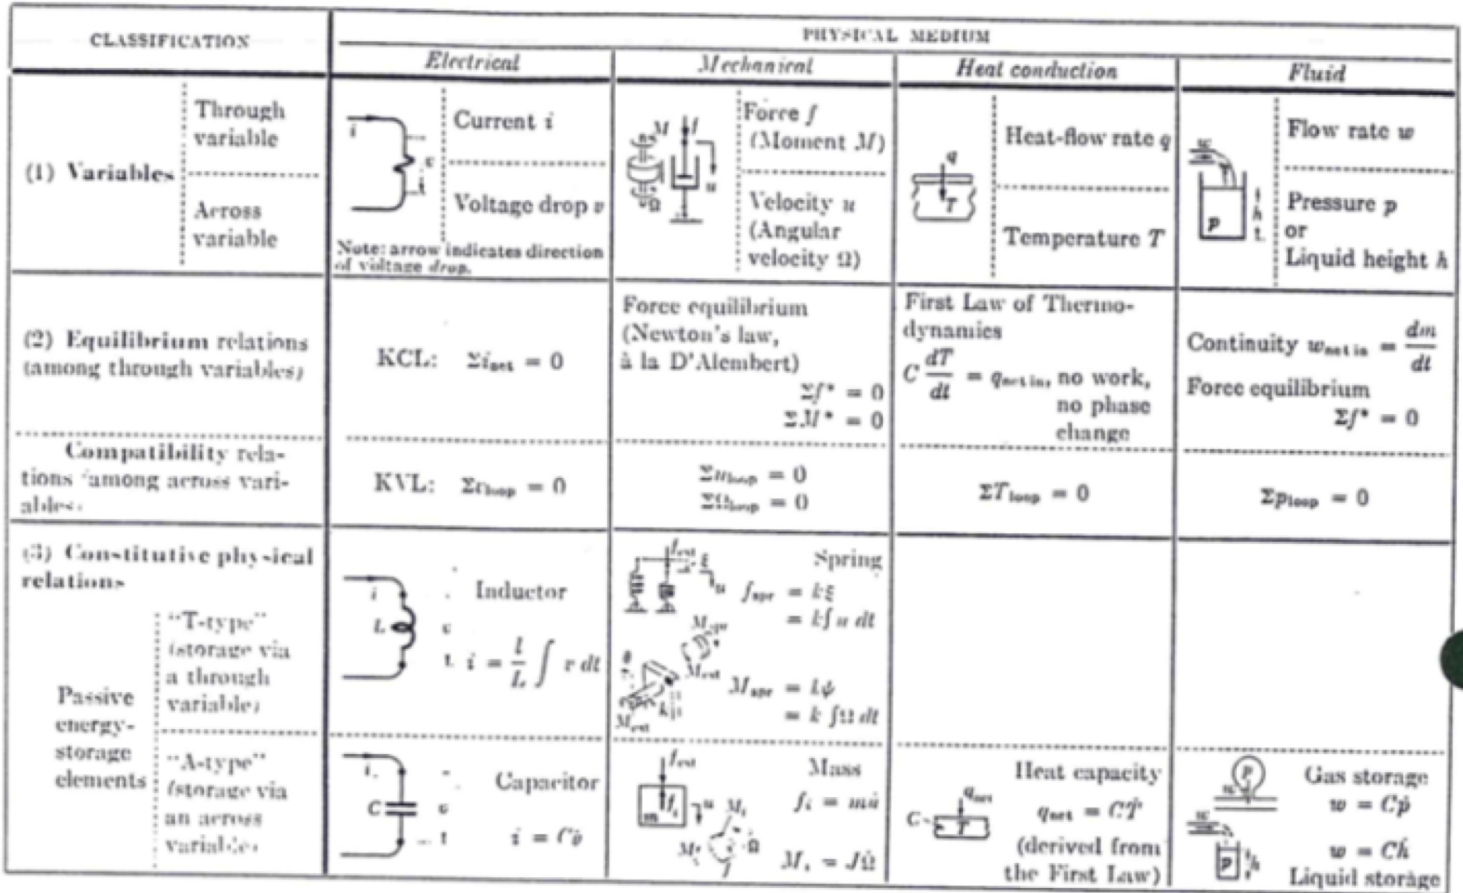 CLASSIFICATION
PHYSICAL MEDIUM
Electrical
Mechanical
Heat conduction
Fluid
(1) Variables
Through
variable
Across
variable
i
v
Current i
Voltage drop v
Note: arrow indicates direction
of voltage drop.
M f
u
Ω
Force f
(Moment M)
Velocity u
(Angular
velocity Ω)
q
T
Heat-flow rate q
Temperature T
w
p
h
Flow rate w
Pressure p
or
Liquid height h
(2) Equilibrium relations
(among through variables)
KCL: Σi_net = 0
Force equilibrium
(Newton's law,
à la D'Alembert)
Σf* = 0
ΣM* = 0
First Law of Thermo-
dynamics
C dT/dt = q_net in, no work,
no phase
change
Continuity w_net in = dm/dt
Force equilibrium
Σf* = 0
Compatibility rela-
tions (among across vari-
ables)
KVL: Σv_loop = 0
Σu_loop = 0
ΣΩ_loop = 0
ΣT_loop = 0
Σp_loop = 0
(3) Constitutive physical
relations
Passive
energy-
storage
elements
"T-type"
(storage via
a through
variable)
i
L
v
Inductor
i = 1/L ∫ v dt
f_ext
ξ
u
Spring
f_spr = kξ
= k∫u dt
M_spr
M_ext
θ
k
M_ext
M_spr = kψ
= k ∫Ω dt
"A-type"
(storage via
an across
variable)
i
C
v
Capacitor
i = Cv̇
f_ext
f_i
m
u
M_i
Ω
Mass
f_i = mu̇
M_i = JΩ̇
q_net
C
T
Heat capacity
q_net = CṪ
(derived from
the First Law)
p
w
Gas storage
w = Cṗ
w
p
h
w = Cḣ
Liquid storage